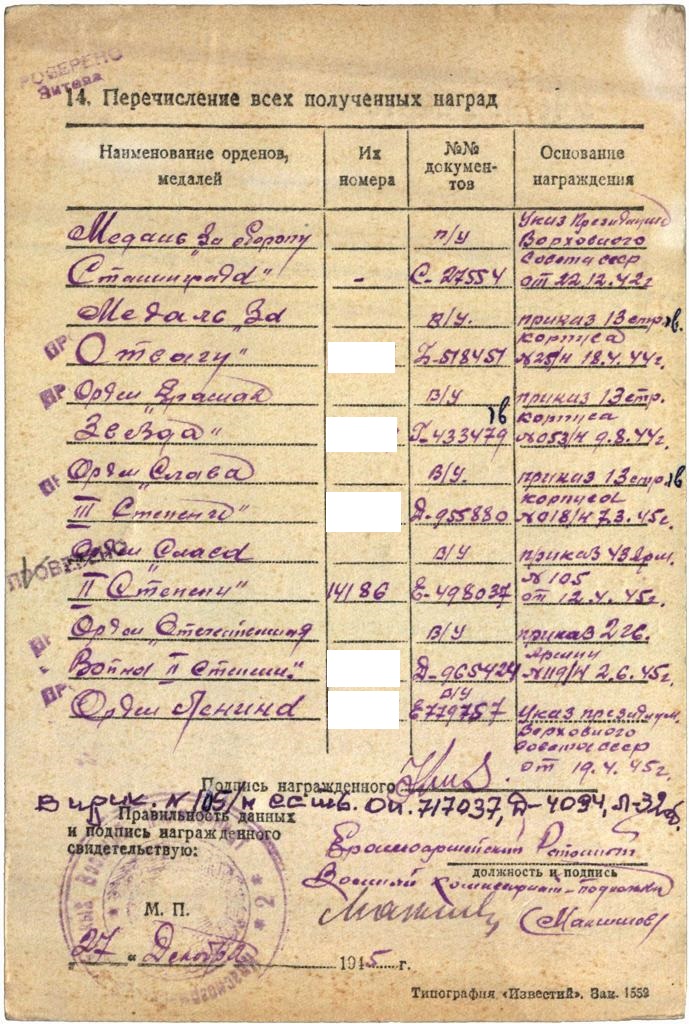 ПРОВЕРЕНО
14. Перечисление всех полученных наград
Наименование орденов, медалей
Их номера
№№ документов
Основание награждения
Медаль "За оборону в/у Указ Президиума Верховного
Сталинграда" - С-27554 Совета СССР от 22.12.42г
Медаль "За в/у. приказ 13 стр. корпуса
Отвагу" 518451 №25/н 18.4.44г.
Орден "Красная в/у приказ 13 стр. корпуса
Звезда" Г-433479 №053/н 9.8.44г.
Орден "Слава в/у. приказ 13 стр. корпуса
III Степени" Д-955880 №018/н 7.3.45г.
Орден Слава в/у приказ 43 Арм.
ПРОВЕРЕНО
II Степени" 14186 Е-498037 №105 от 12.4.45г.
Орден "Отечественная в/у приказ 2 гв. Армии
Война II Степени" Д-965424 №119/н 2.6.45г.
Орден Ленина в/у Е779757 Указ президиум. Верховного Совета СССР от 19.4.45г.
Подпись награжденного
№105/н 717037, Д-4094,
Правильность данных
и подпись награжденного
свидетельствую:
должность и подпись
Военный комиссариат-подполковник
М. П.
(Макашов)
"27" Декабря 1945 г.
Типография «Известий». Зак. 1552